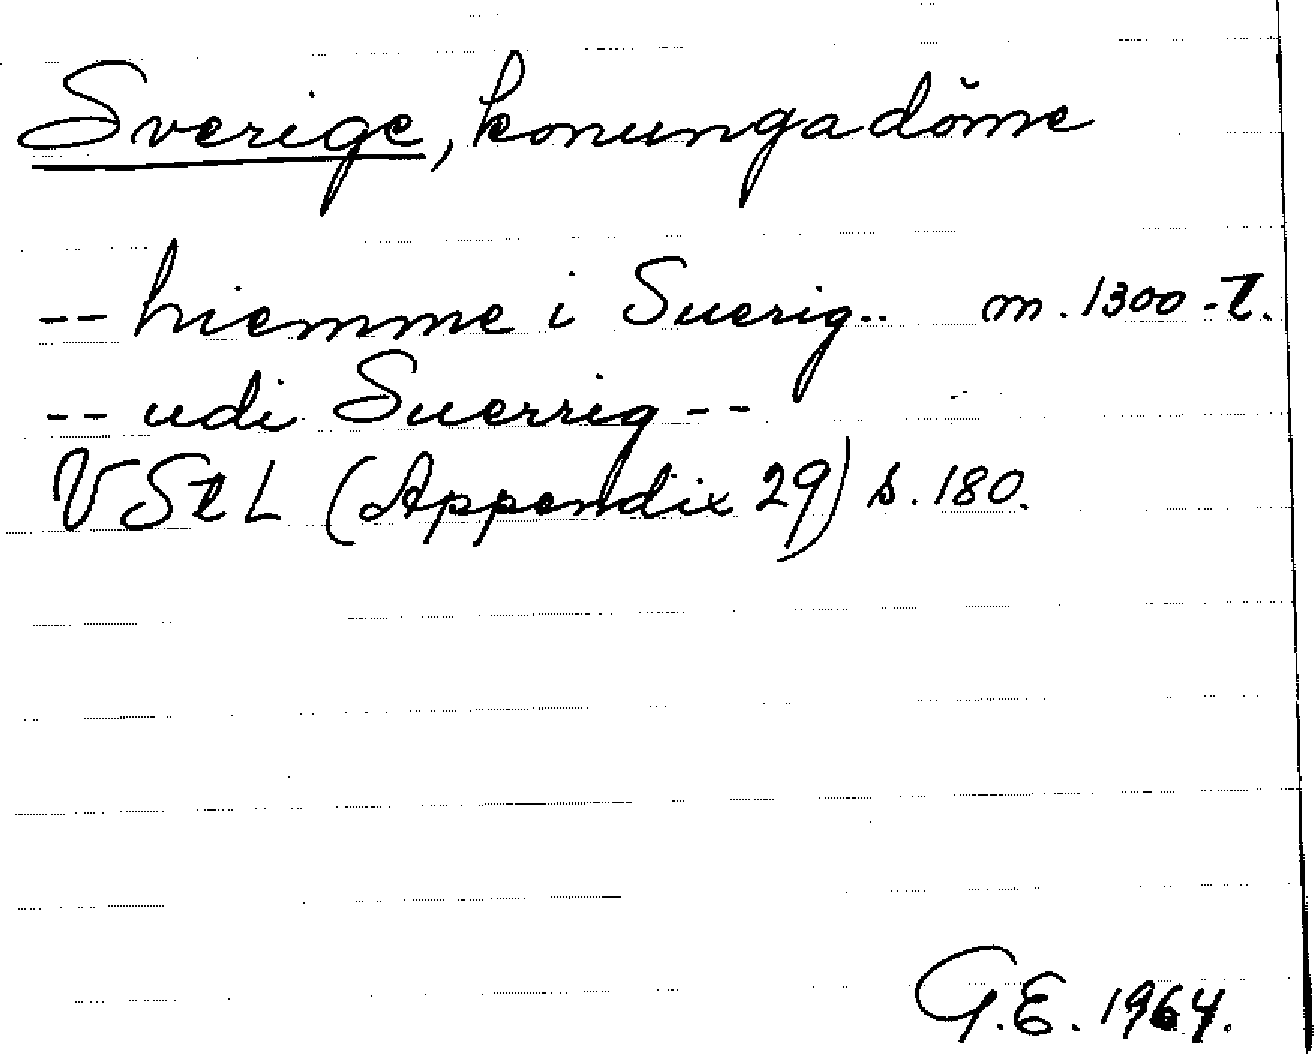 Sverige, konungadöme
-- hiemme i Suerig.. m. 1300-t.
-- udi Suerrig --
VStL (Appendix 29) s. 180.
G.E. 1964.